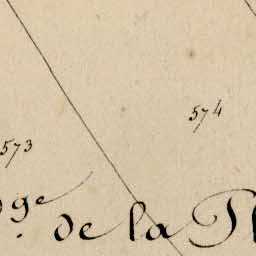 574
573
de la